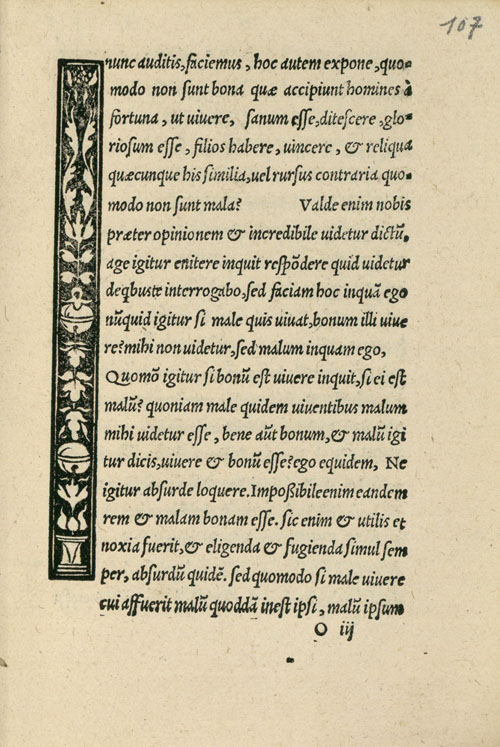 107
nunc auditis, faciemus, hoc autem expone, quo-
modo non sunt bona quæ accipiunt homines à
fortuna, ut vivere, sanum esse, ditescere, glo-
riosum esse, filios habere, uincere, & reliqua
quæcunque his similia, uel rursus contraria quo-
modo non sunt mala? Valde enim nobis
præter opinionem & incredibile uidetur dictũ.
age igitur enitere inquit respõdere quid uidetur
de qbuste interrogabo, sed faciam hoc inquã ego
nũquid igitur si male quis uiuat, bonum illi uiue
re? mihi non uidetur, sed malum inquam ego,
Quomõ igitur si bonũ est uiuere inquit, si ei est
malũ? quoniam male quidem uiuentibus malum
mihi uidetur esse, bene aũt bonum, & malũ igi
tur dicis, uiuere & bonũ esse? ego equidem, Ne
igitur absurde loquere. Impoßibile enim eandem
rem & malam bonam esse. sic enim & utilis et
noxia fuerit, & eligenda & fugienda simul sem
per, absurdũ quidẽ. sed quomodo si male uiuere
cui affuerit malũ quoddã inest ipsi, malũ ipsum
O iij